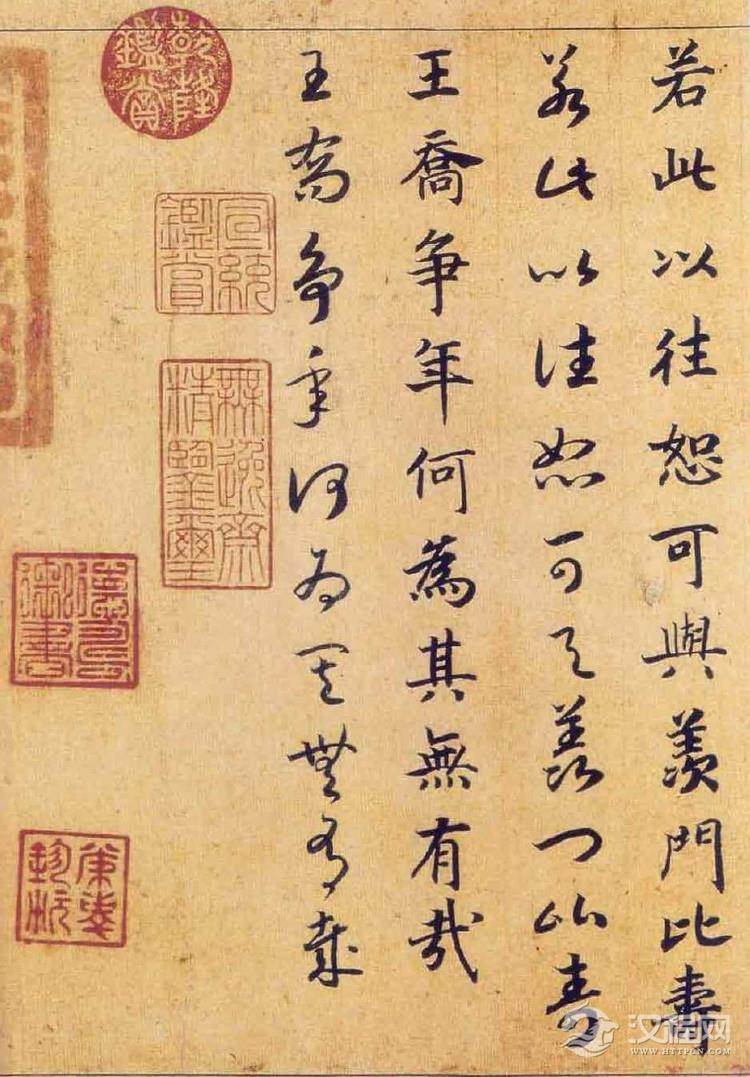 若此以往恕可與羨門比壽
若此以往恕可与羨门比壽
王喬争年何為其無有哉
王喬争年何為其無有哉
乾隆鑑賞
宣統鑑賞
無逸齋精鑒璽
汉程网
WWW.HTTPCN.COM